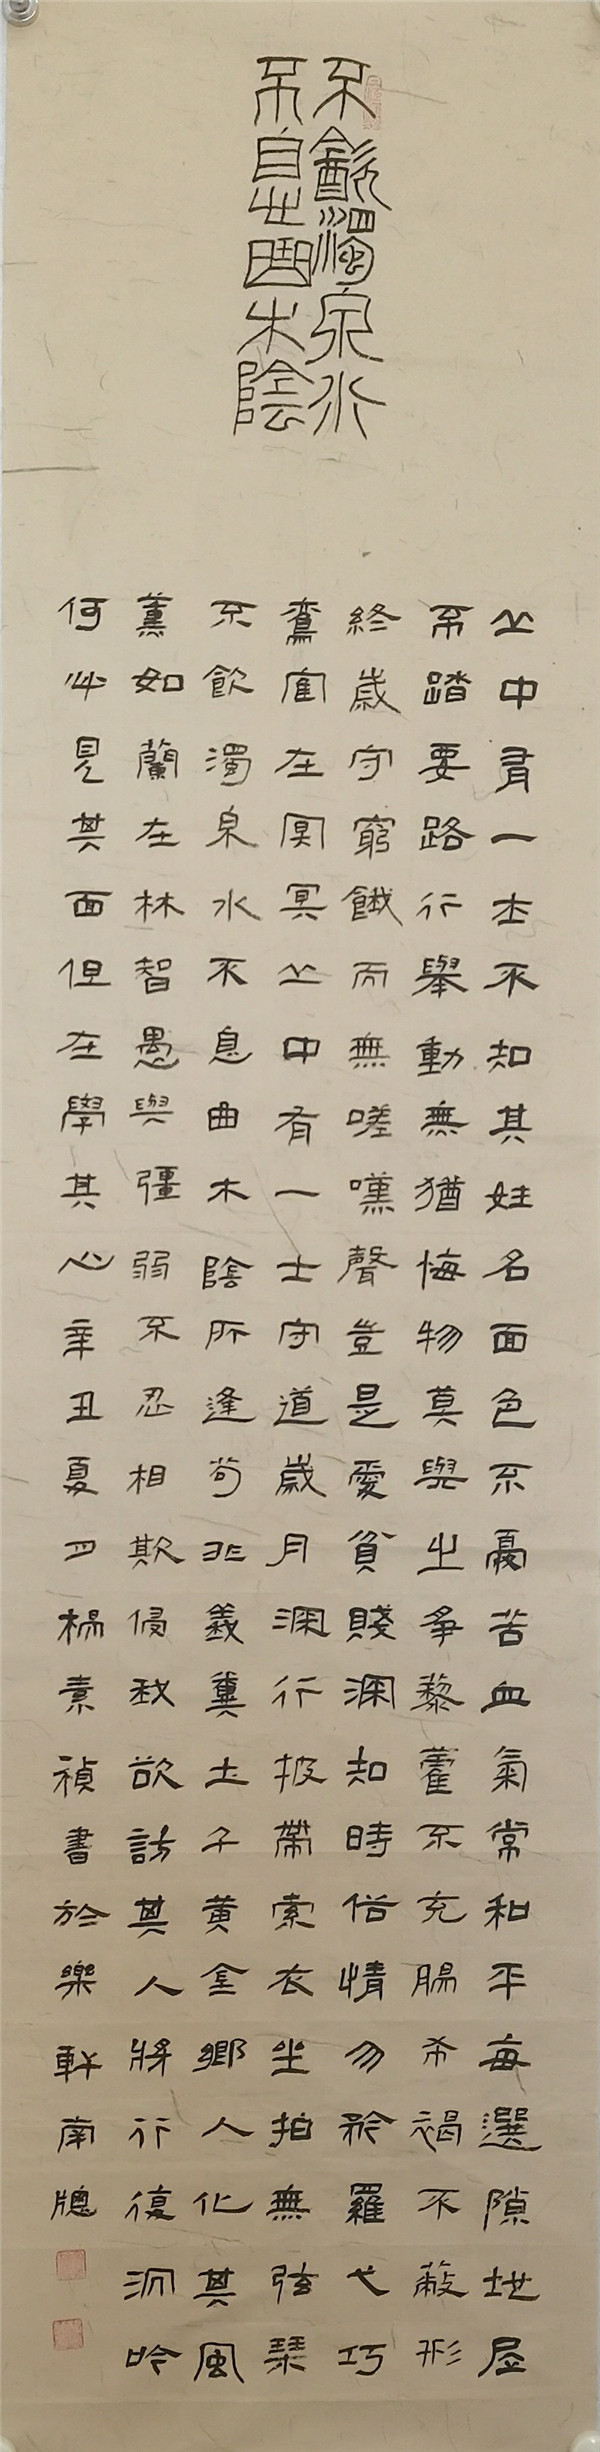 不飲濁泉水
不息曲木陰
丘中有一士不知其姓名面色不憂苦血氣常和平每選隙地居
不踏要路行舉動無猶悔物莫與之爭藜藿不充腸布褐不蔽形
終歲守窮餓而無嗟嘆聲豈是愛貧賤深知時俗情勿矜羅弋巧
鸞鶴在冥冥丘中有一士守道歲月深行披帶索衣坐拍無弦琴
不飲濁泉水不息曲木陰所逢苟非義糞土千黃金鄉人化其風
薰如蘭在林智愚與彊弱不忍相欺侵我欲訪其人將行復沉吟
何必見其面但在學其心辛丑夏日楊素禎書於樂軒南牕